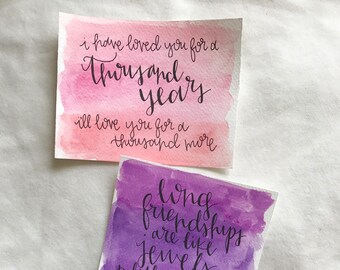 i have loved you for a
thousand
years
i'll love you for a
thousand more
long
friendships
are like
jewels